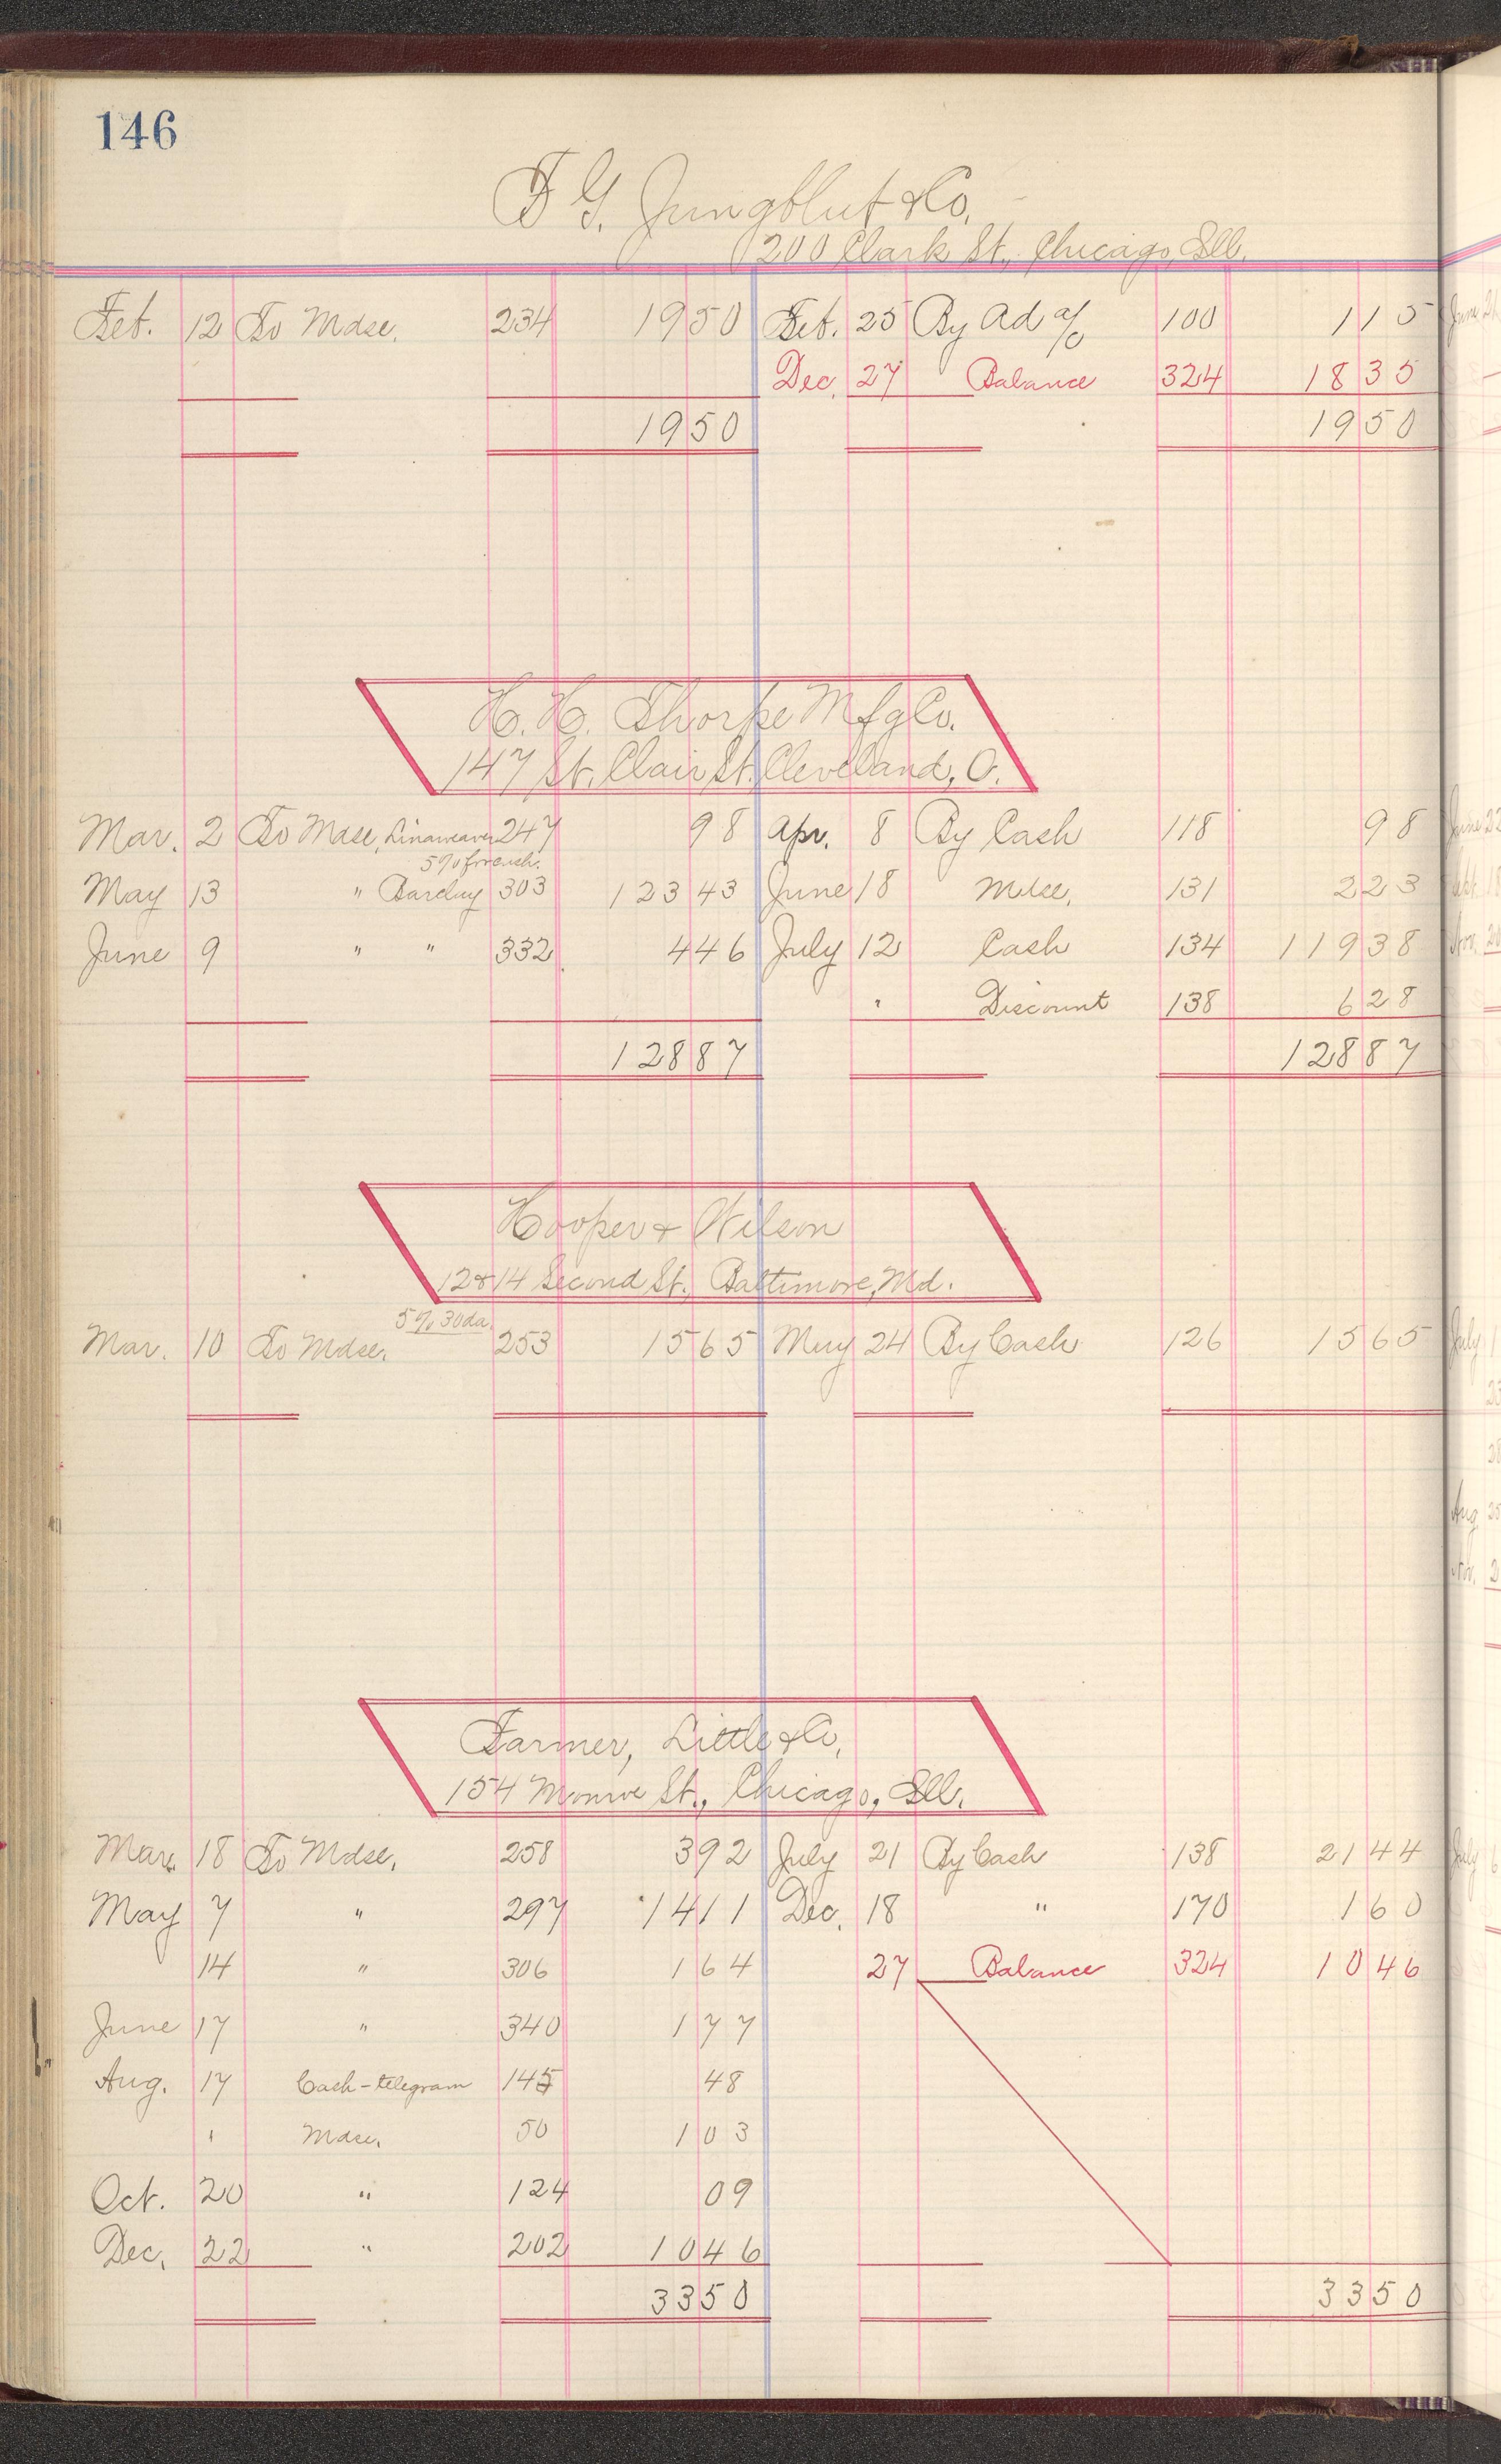 146
F G. Jungblut & Co.
200 Clark St., Chicago, Ill.
Feb. 12 To Mdse. 234 1950 Feb. 25 By Ad a/c 100 115
Dec. 27 Balance 324 1835
1950 1950
H. H. Thorpe Mfg Co.
147 St. Clair St. Cleveland, O.
Mar. 2 To Mdse, Linaweaver 247 98 Apr. 8 By Cash 118 98
5%
May 13 " Barclay 303 12343 June 18 Mdse, 131 223
June 9 " " 332 446 July 12 Cash 134 11938
" Discount 138 628
12887 12887
Hooper & Wilson
12&14 Second St., Baltimore, Md.
5% 30 da.
Mar. 10 To Mdse. 253 1565 May 24 By Cash 126 1565
Farmer, Little & Co,
154 Monroe St., Chicago, Ill.
Mar. 18 To Mdse. 258 392 July 21 By Cash 138 2144
May 7 " 297 1411 Dec. 18 " 170 160
14 " 306 164 27 Balance 324 1046
June 17 " 340 177
Aug. 17 Cash - telegram 145 48
" Mdse. 50 103
Oct. 20 " 124 09
Dec. 22 " 202 1046
3350 3350